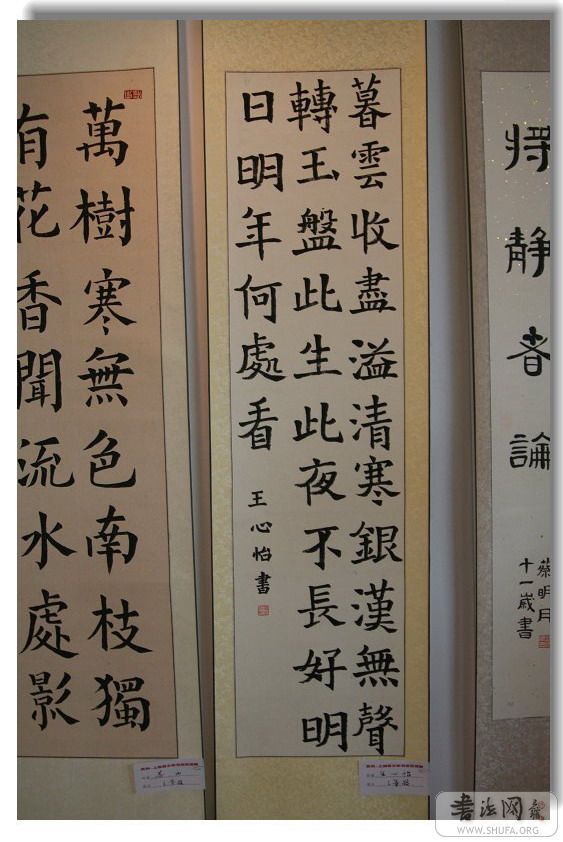 将静者論
蔡明月
十一歲書
暮雲收盡溢清寒銀漢無聲
轉玉盤此生此夜不長好明
日明年何處看
王心怡書
萬樹寒無色南枝獨
有花香聞流水處影
书法网
WWW.SHUFA.ORG